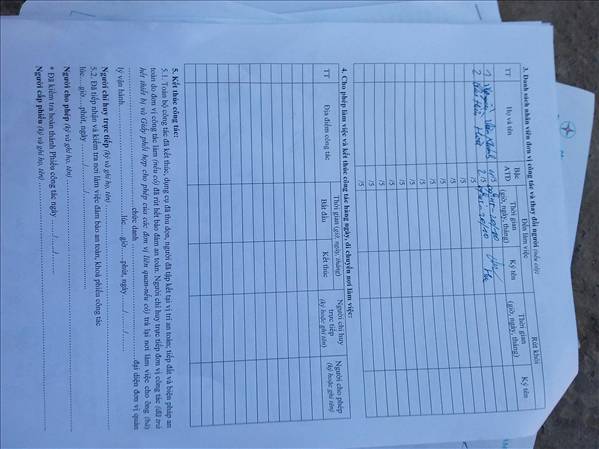 3. Danh sách nhân viên đơn vị công tác và thay đổi người (nếu có):
TT
Họ và tên
Bậc ATĐ
Đến làm việc
Rút khỏi
Thời gian (giờ, ngày, tháng)
Ký tên
Thời gian (giờ, ngày, tháng)
Ký tên
1
/5
2
/5
/5
/5
/5
/5
/5
/5
4. Cho phép làm việc và kết thúc công tác hàng ngày, di chuyển nơi làm việc:
TT
Địa điểm công tác
Thời gian (giờ, ngày, tháng)
Bắt đầu
Kết thúc
Người chỉ huy trực tiếp (ký hoặc ghi tên)
Người cho phép (ký hoặc ghi tên)
5. Kết thúc công tác:
5.1. Toàn bộ công tác đã kết thúc, dụng cụ đã thu dọn, người đã tập kết tại vị trí an toàn; tiếp đất và biện pháp an
toàn do đơn vị công tác làm (nếu có) đã rút hết bảo đảm an toàn. Người chỉ huy trực tiếp đơn vị công tác (đã trừ
hết thiết bị và Giấy phối hợp cho phép của các đơn vị liên quan-nếu có) trả lại nơi làm việc cho ông (bà)
chức danh đại diện đơn vị quản
lý vận hành lúc....giờ ....phút, ngày ...../...../.....
Người chỉ huy trực tiếp (ký và ghi họ, tên)
5.2. Đã tiếp nhận và kiểm tra nơi làm việc đảm bảo an toàn, khoá phiếu công tác
lúc....giờ ....phút, ngày ...../...../.....
Người cho phép (ký và ghi họ, tên)
* Đã kiểm tra hoàn thành Phiếu công tác ngày ...../...../.....
Người cấp phiếu (ký và ghi họ, tên)